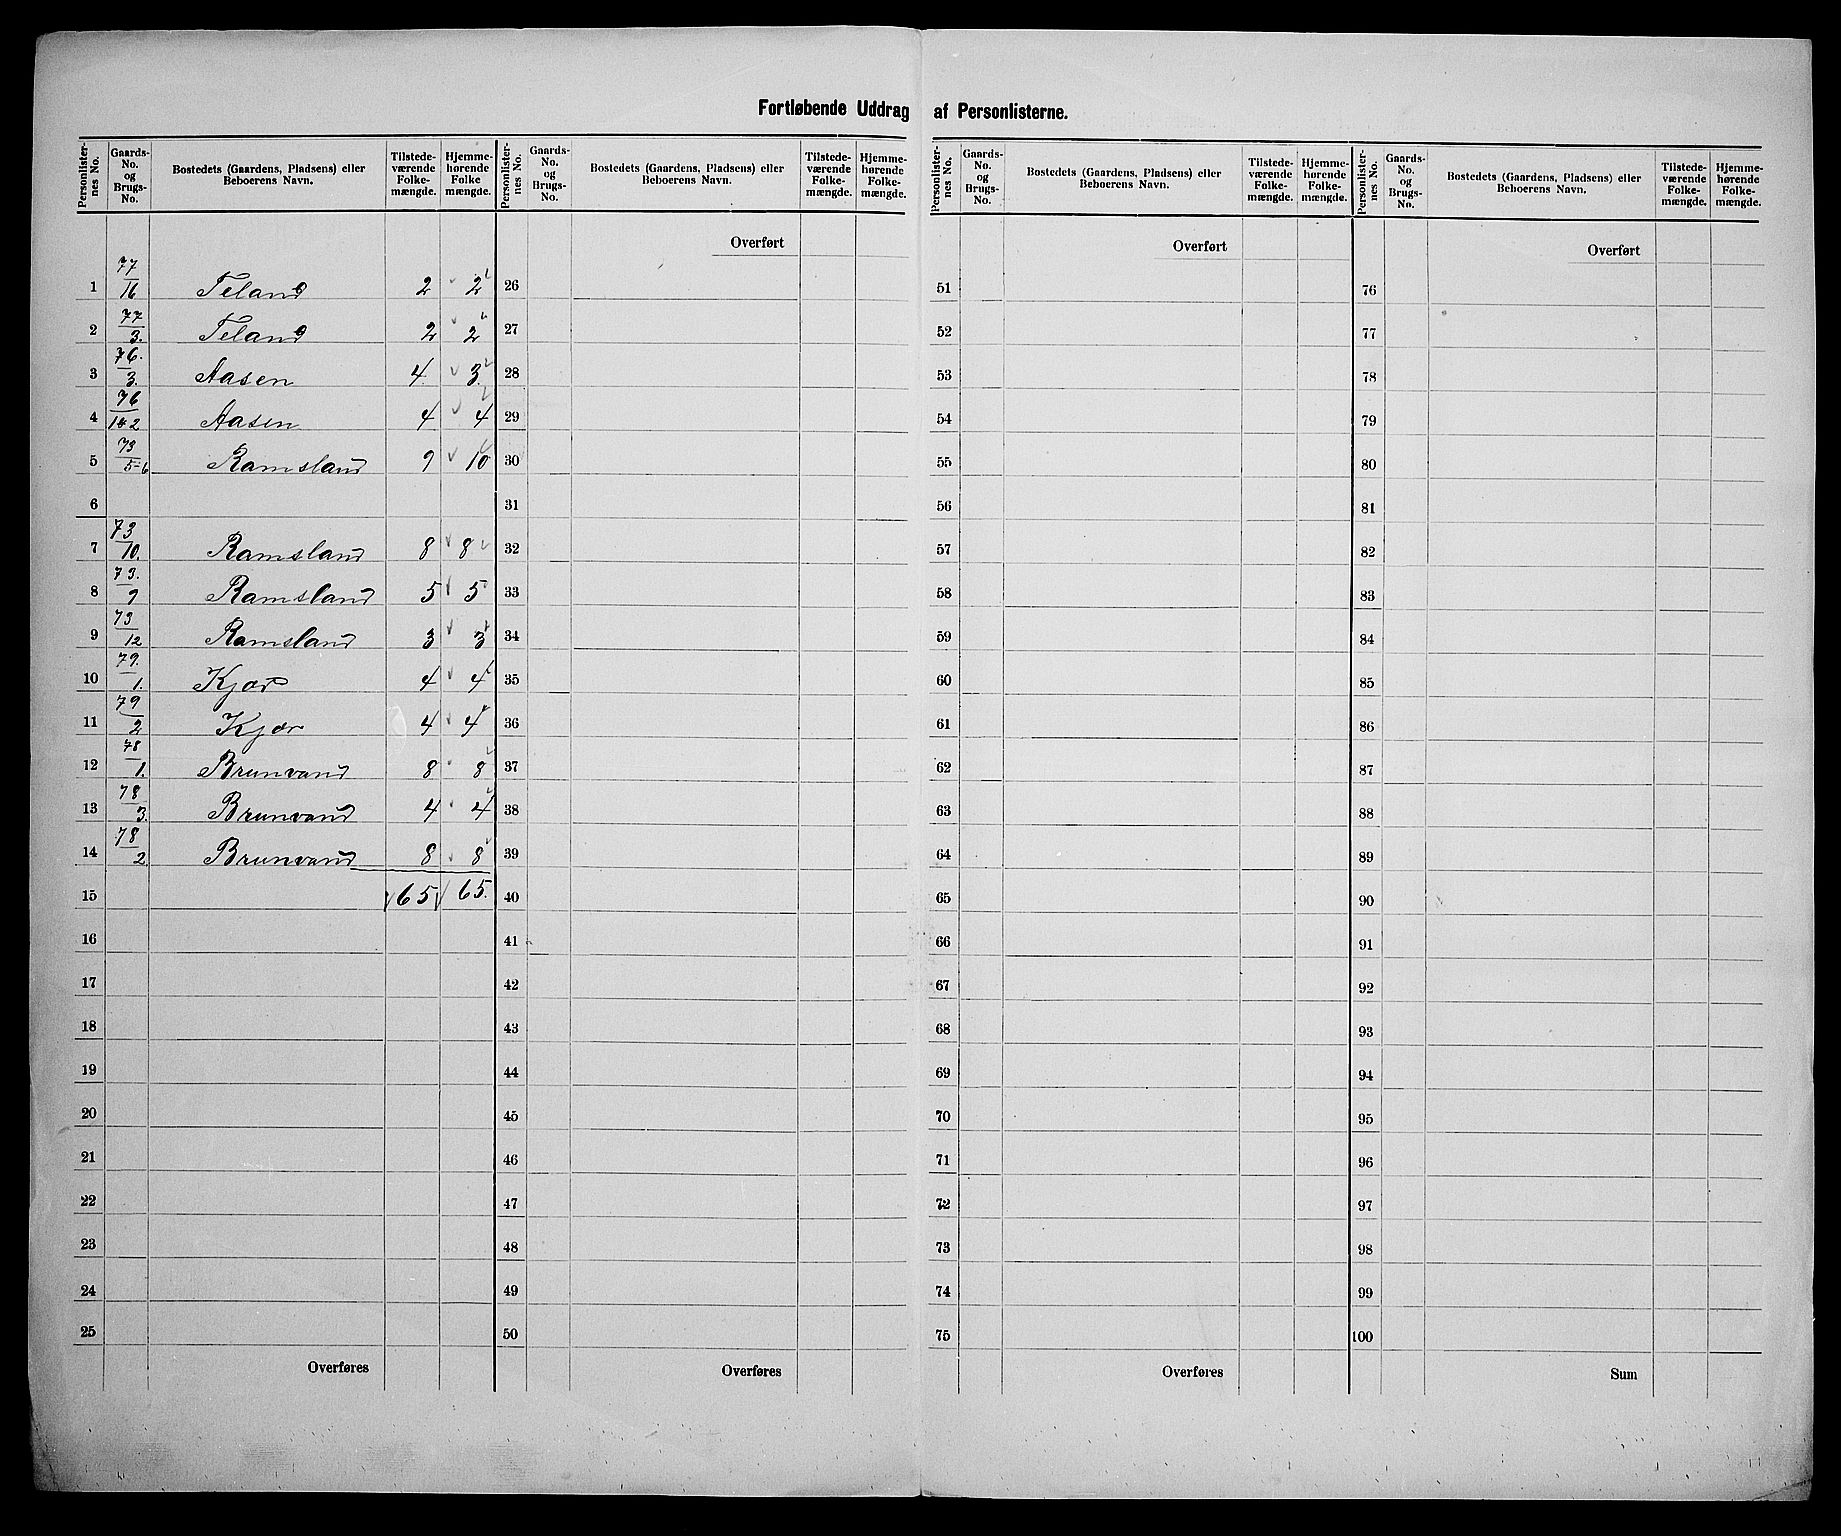 Fortløbende Uddrag af Personlisterne.
Personlister-nes No. Gaards-No. og Brugs-No. Bostedets (Gaardens, Pladsens) eller Beboerens Navn. Tilstede-værende Folke-mængde. Hjemme-hørende Folke mængde.
1 77/16 Teland 2 2
2 77/3. Teland 2 2
3 76./3. Aasen 4. 3.
4 76/1&2 Aasen 4 4
5 73/5-6 Ramsland 9 10
6
7 73/10. Ramsland 8 8
8 73./9 Ramsland 5 5
9 73/12 Ramsland 3 3
10 79./1. Kjær 4 4
11 79/2 Kjær 4 4
12 78/1. Brunvand 8 8
13 78/3. Brunvand 4 4
14 78/2 Brunvand 8 8
15 65 65.
16
17
18
19
20
21
22
23
24
25
Overføres
Personlister-nes No. Gaards-No. og Brugs-No. Bostedets (Gaardens, Pladsens) eller Beboerens Navn. Tilstede-værende Folke-mængde. Hjemme-hørende Folke-mængde.
Overført
26
27
28
29
30
31
32
33
34
35
36
37
38
39
40
41
42
43
44
45
46
47
48
49
50
Overføres
Personlister-nes No. Gaards-No. og Brugs-No. Bostedets (Gaardens, Pladsens) eller Beboerens Navn. Tilstede-værende Folke-mængde. Hjemme-hørende Folke-mængde.
Overført
51
52
53
54
55
56
57
58
59
60
61
62
63
64
65
66
67
68
69
70
71
72
73
74
75
Overføres
Personlister-nes No. Gaards-No. og Brugs-No. Bostedets (Gaardens, Pladsens) eller Beboerens Navn. Tilstede-værende Folke-mængde. Hjemme-hørende Folke-mængde.
Overført
76
77
78
79
80
81
82
83
84
85
86
87
88
89
90
91
92
93
94
95
96
97
98
99
100
Sum